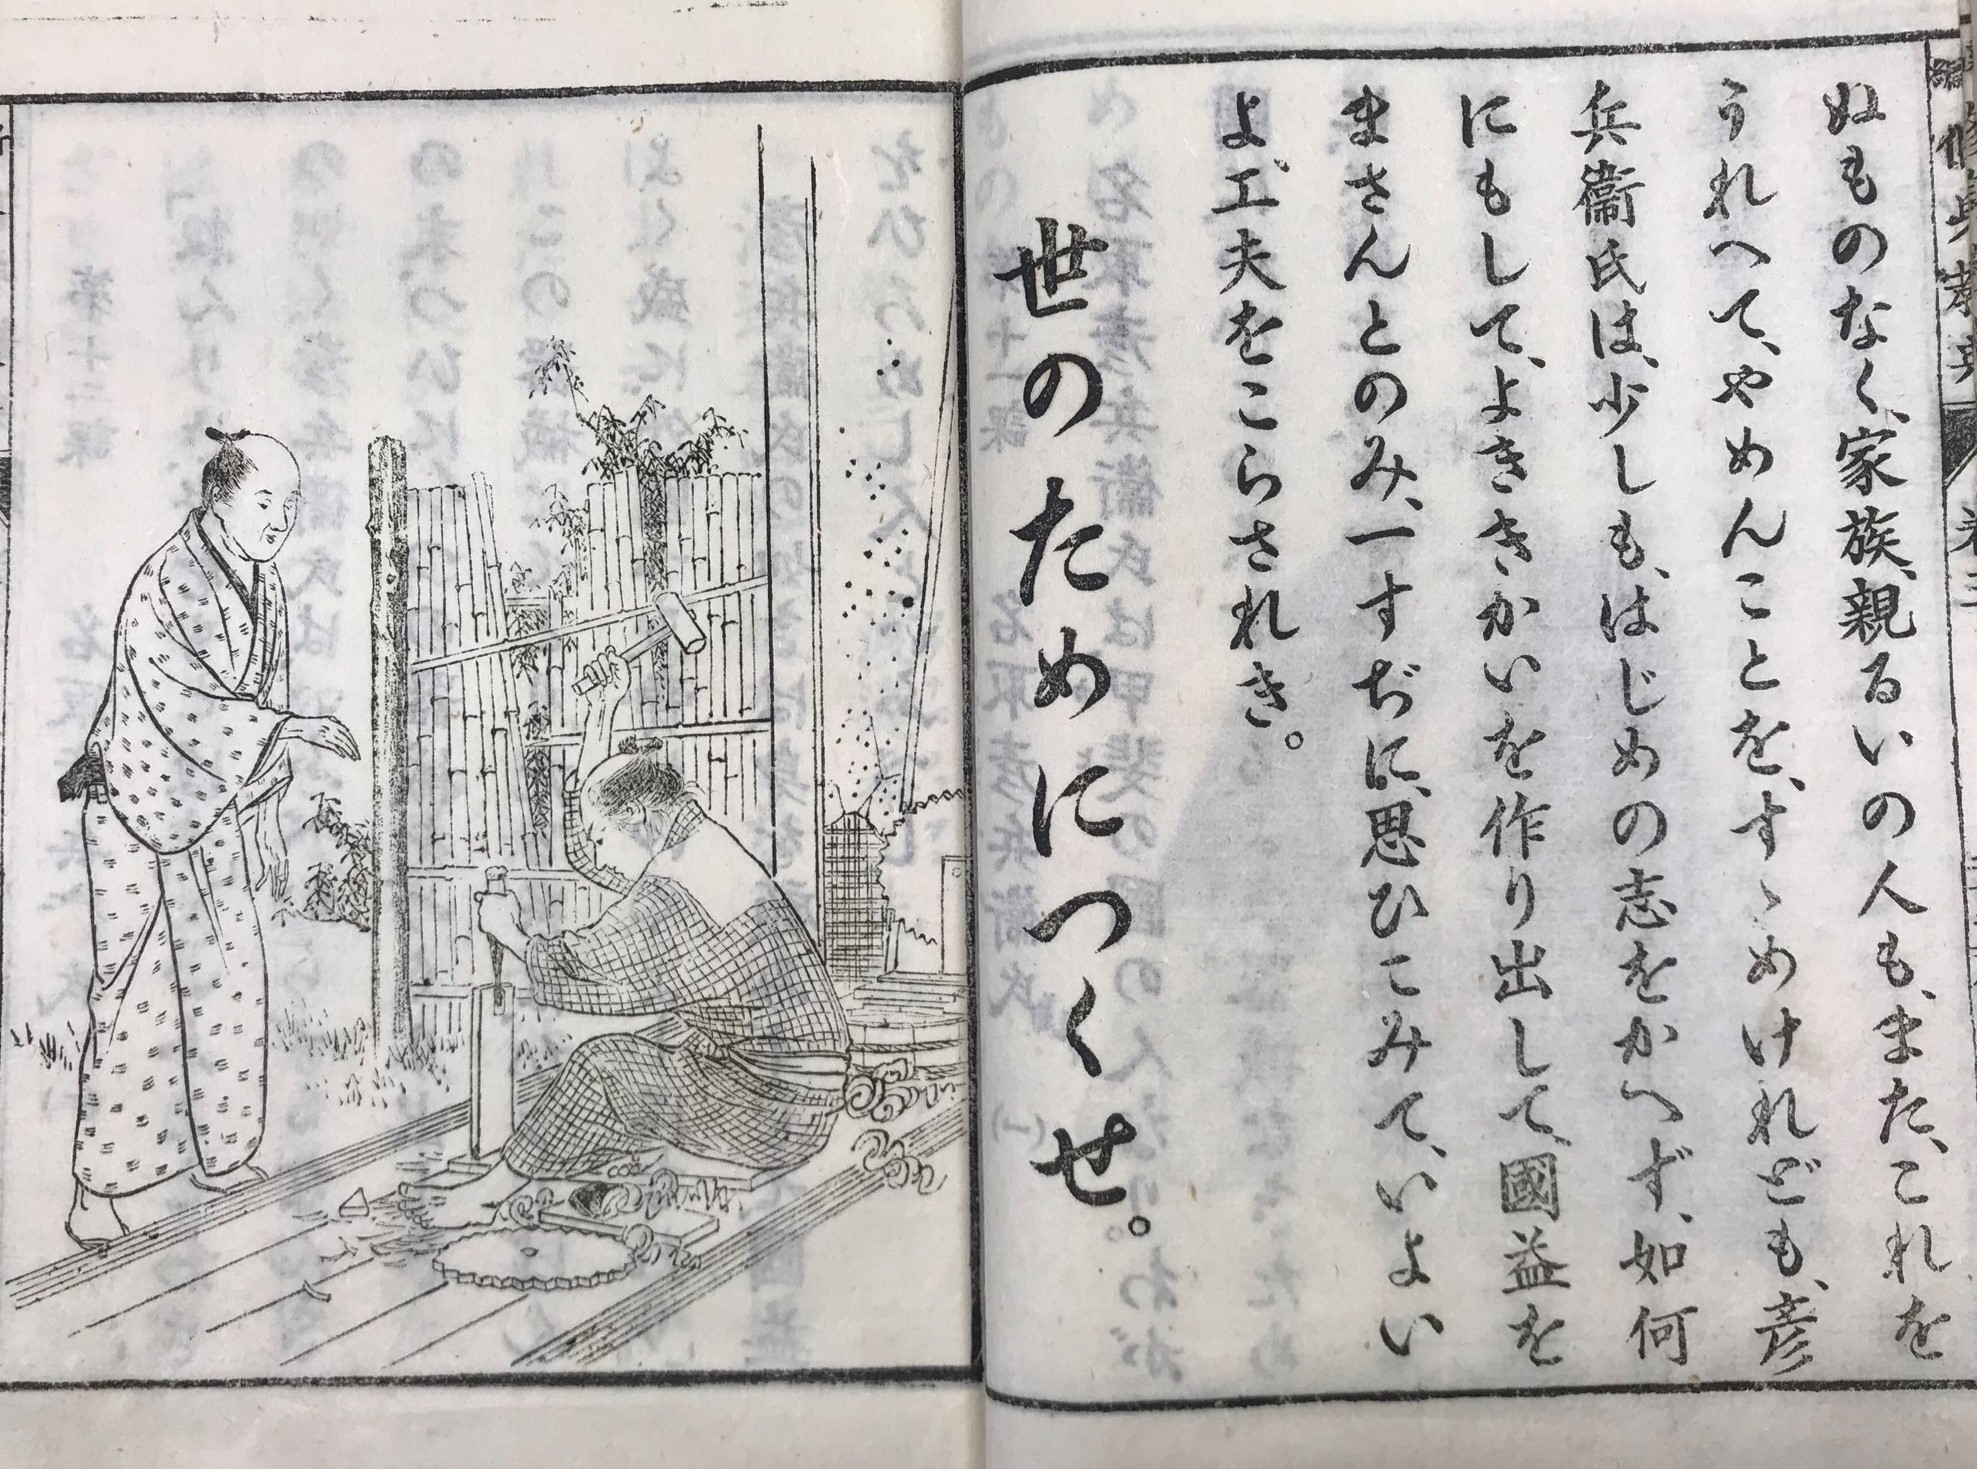 ぬものなく、家族、親るいの人も、また、これを
うれへて、やめんことを、すゝめけれども、彦
兵衞氏は、少しも、はじめの志をかへず、如何
にもして、よききかいを作り出して、國益を
まさんとのみ、一すぢに、思ひこみて、いよい
よ、工夫をこらされき。
世のためにつくせ。